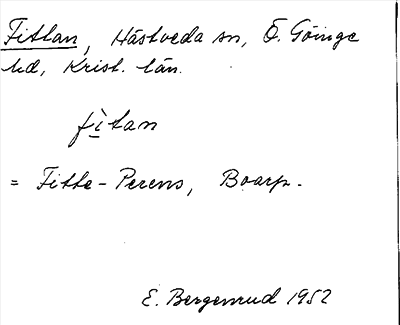 Fittan, Hästveda sn, Ö. Göinge
hd, Krist. län.
fìtan
= Fitte-Perens, Boarp.
E. Bergenrud 1952